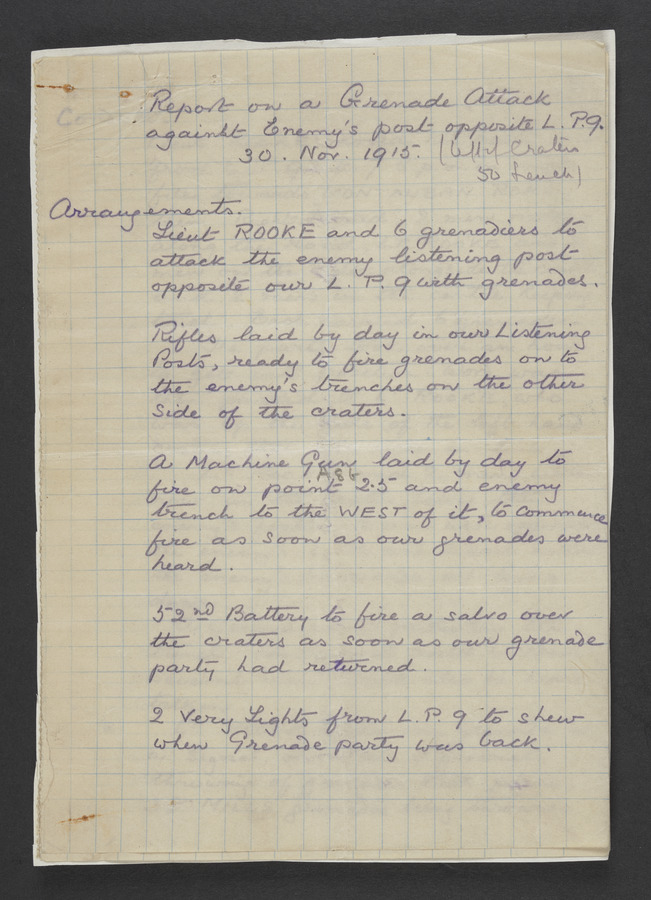 Report on a Grenade Attack
against Enemy's post opposite L. P. 9.
30. Nov. 1915. ( of Crater
50 trench)
Arrangements.
Lieut ROOKE and 6 grenadiers to
attack the enemy listening post
opposite our L. P. 9 with grenades.
Rifles laid by day in our Listening
Posts, ready to fire grenades on to
the enemy's trenches on the other
side of the craters.
A Machine Gun laid by day to
A86
fire on point 2.5 and enemy
trench to the WEST of it, to commence
fire as soon as our grenades were
heard.
52nd Battery to fire a salvo over
the craters as soon as our grenade
party had returned.
2 Very Lights from L. P. 9 to shew
when Grenade party was back.